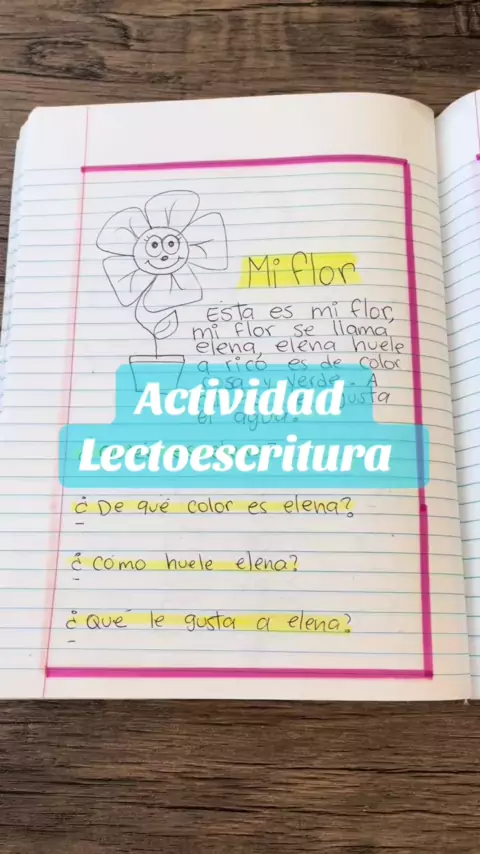 Mi flor
Esta es mi flor,
mi flor se llama
elena, elena huele
a rico es de color
rosa y verde. A
gusta
el agua.
Actividad
Lectoescritura
¿De qué color es elena?
¿Como huele elena?
¿Qué le gusta a elena?